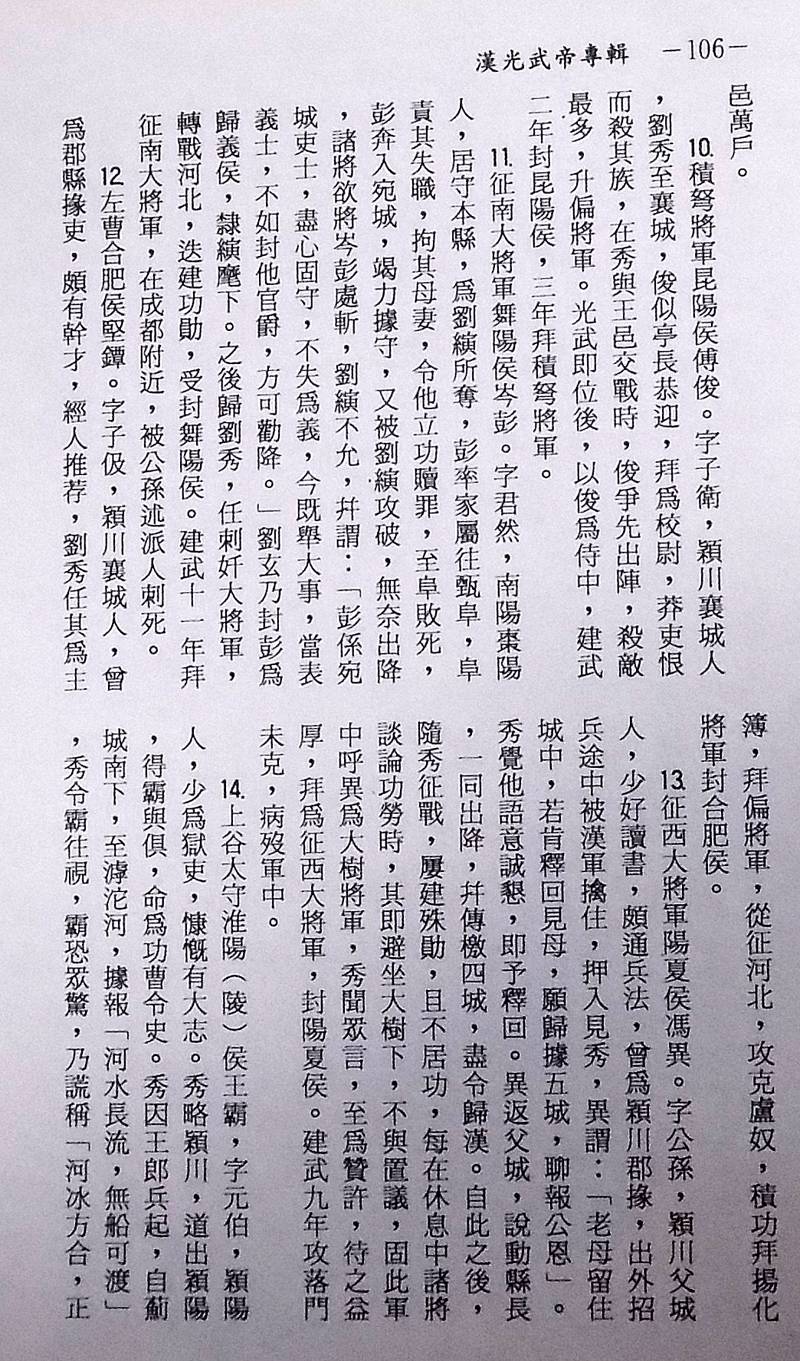 漢光武帝專輯 －106－
邑萬戶。
10.積弩將軍昆陽侯傅俊。字子衛，潁川襄城人
，劉秀至襄城，俊似亭長恭迎，拜爲校尉，莽吏恨
而殺其族，在秀與王邑交戰時，俊爭先出陣，殺敵
最多，升偏將軍。光武即位後，以俊爲侍中，建武
二年封昆陽侯，三年拜積弩將軍。
11.征南大將軍舞陽侯岑彭。字君然，南陽棗陽
人，居守本縣，爲劉縯所奪，彭率家屬往甄阜，阜
責其失職，拘其母妻，令他立功贖罪，至阜敗死，
彭奔入宛城，竭力據守，又被劉縯攻破，無奈出降
，諸將欲將岑彭處斬，劉縯不允，幷謂：「彭係宛
城吏士，盡心固守，不失爲義，今既舉大事，當表
義士，不如封他官爵，方可勸降。」劉玄乃封彭爲
歸義侯，隸縯麾下。之後歸劉秀，任刺奸大將軍，
轉戰河北，迭建功勛，受封舞陽侯。建武十一年拜
征南大將軍，在成都附近，被公孫述派人刺死。
12.左曹合肥侯堅鐔。字子伋，潁川襄城人，曾
爲郡縣掾吏，頗有幹才，經人推荐，劉秀任其爲主
簿，拜偏將軍，從征河北，攻克盧奴，積功拜揚化
將軍封合肥侯。
13.征西大將軍陽夏侯馮異。字公孫，潁川父城
人，少好讀書，頗通兵法，曾爲潁川郡掾，出外招
兵途中被漢軍擒住，押入見秀，異謂：「老母留住
城中，若肯釋回見母，願歸據五城，聊報公恩」。
秀覺他語意誠懇，即予釋回。異返父城，說動縣長
，一同出降，幷傳檄四城，盡令歸漢。自此之後，
隨秀征戰，屢建殊勛，且不居功，每在休息中諸將
談論功勞時，其即避坐大樹下，不與置議，固此軍
中呼異爲大樹將軍，秀聞眾言，至爲贊許，待之益
厚，拜爲征西大將軍，封陽夏侯。建武九年攻落門
未克，病歿軍中。
14.上谷太守淮陽（陵）侯王霸，字元伯，潁陽
人，少爲獄吏，慷慨有大志。秀略潁川，道出潁陽
，得霸與俱，命爲功曹令史。秀因王郎兵起，自薊
城南下，至滹沱河，據報「河水長流，無船可渡」
，秀令霸往視，霸恐眾驚，乃謊稱「河冰方合，正